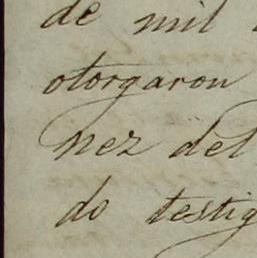 de mil
otorgaron
nez del
do testig